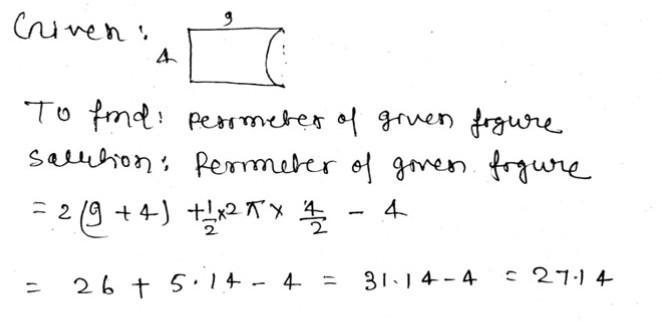 Given :
9
4
To find: perimeter of given figure
Solution: Perimeter of given figure
= 2 (9 + 4) + 1/2 × 2 π × 4/2 - 4
= 26 + 5.14 - 4 = 31.14 - 4 = 27.14